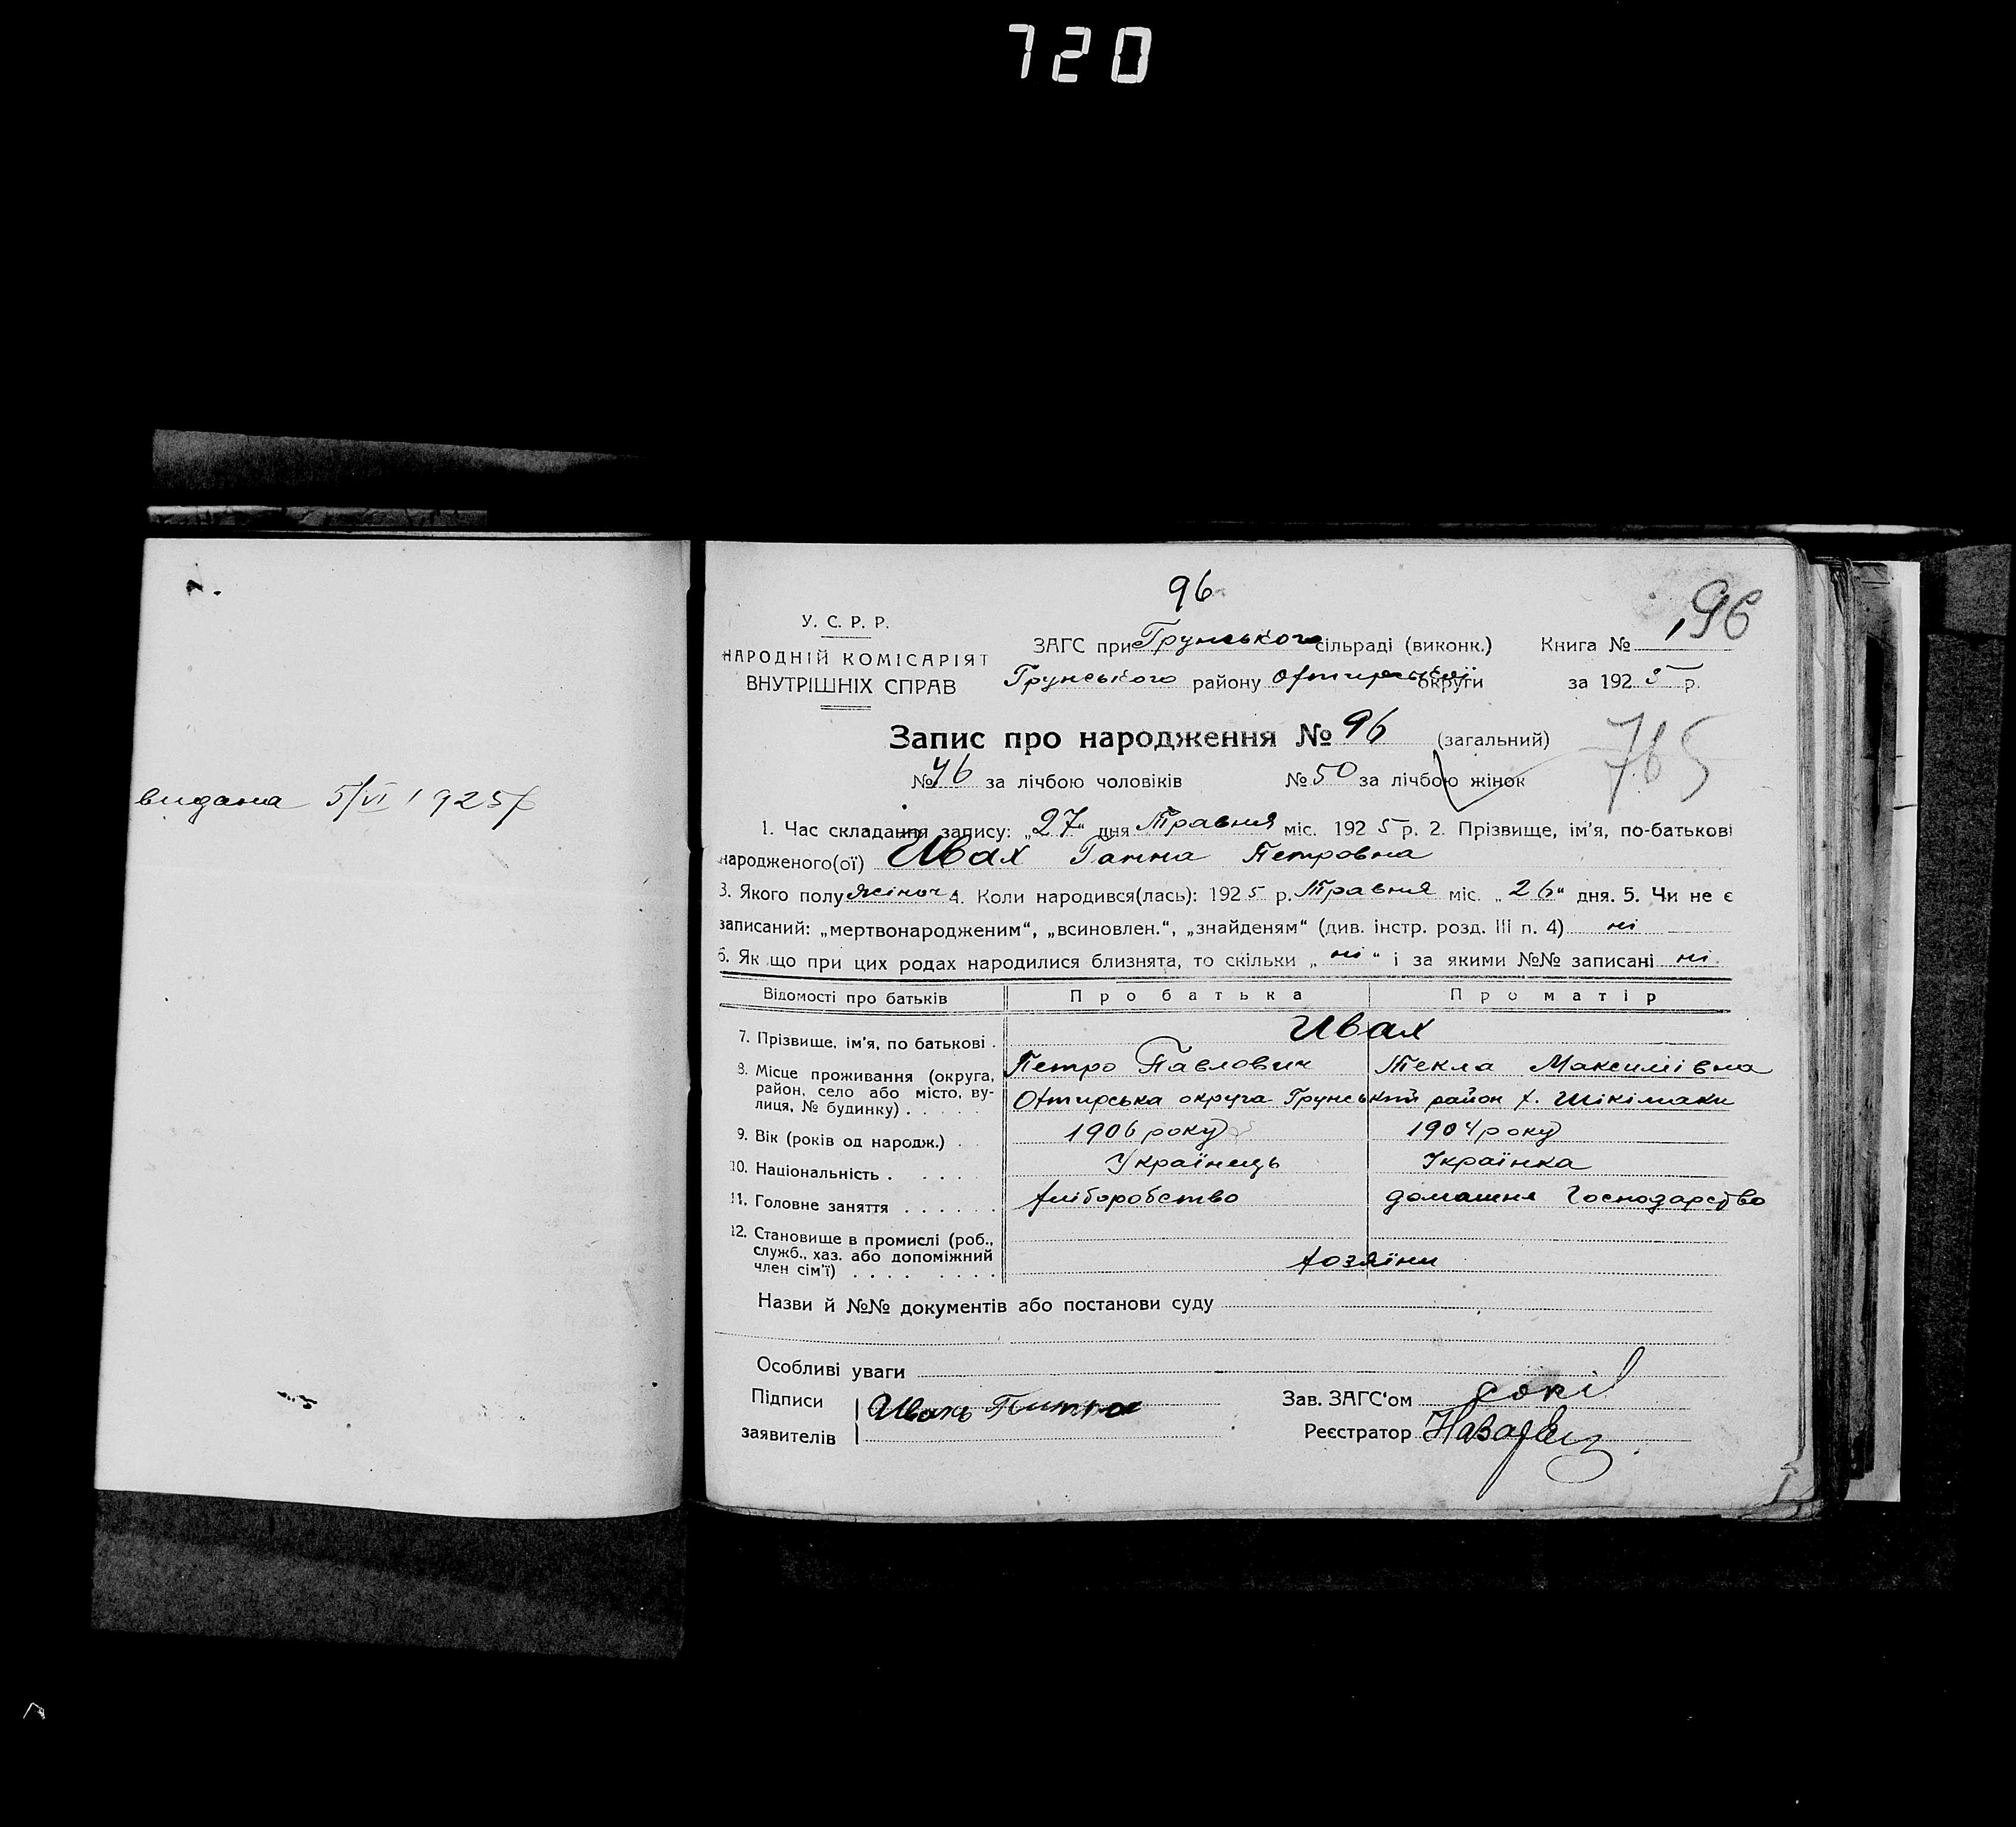 720
видана 5/VI 1925 р
96
96
У. С. Р. Р.
НАРОДНІЙ КОМІСАРІЯТ
ВНУТРІШНІХ СПРАВ
ЗАГС при Грунського сільраді (виконк.) Книга №
Грунського району Охтирської округи за 1925 р.
Запис про народження № 96 (загальний)
765
№ 46 за лічбою чоловіків № 50 за лічбою жінок
1. Час складання запису: „27“ дня Травня міс. 1925 р. 2. Прізвище, ім'я, по-батькові
народженого(ої) Ивах Ганна Петровна
3. Якого полу жіноч 4. Коли народився(лась): 1925 р. Травня міс. „26“ дня. 5. Чи не є
записаний: „мертвонародженим“, „всиновлен.“, „знайденям“ (див. інстр. розд. III п. 4) ні
6. Як що при цих родах народилися близнята, то скільки „ні“ і за якими №№ записані ні
Відомості про батьків Про батька Про матір
7. Прізвище, ім'я, по батькові . Ивах
Петро Павлович Текла Максимівна
8. Місце проживання (округа, район, село або місто, ву-
лиця, № будинку) . . . . . Охтирська округа Грунський район х. Шікімаки
9. Вік (років од народж.) . . 1906 року 1904 року
10. Національність . . . . . Українець Українка
11. Головне заняття . . . . . . хліборобство домашня Господарство
12. Становище в промислі (роб.,
служб., хаз. або допоміжний
член сім'ї) . . . . . . . . . хозяїни
Назви й №№ документів або постанови суду
Особливі уваги
Підписи
заявителів
Ивахь
Зав. ЗАГС'ом Сокіл
Реєстратор